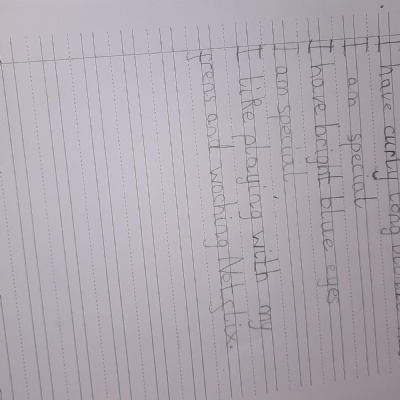 I have curly long
I am special
I have bright blue eyes
I am special
I like playing with my
frens and waching Netflix.